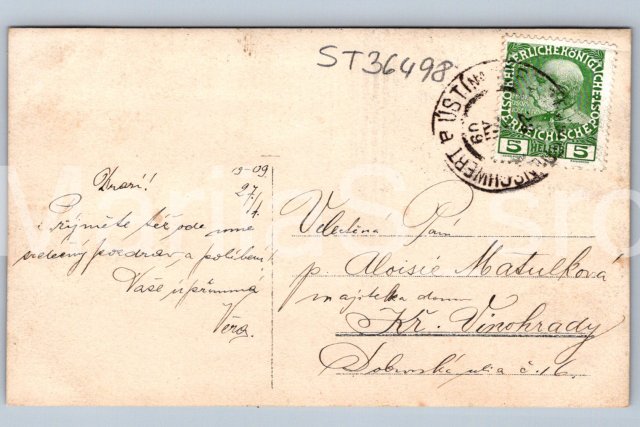 ST36498
KAISERLICHE KÖNIGLICHE
ÖSTERREICHISCHE POST
5 HELLER 5
WILDENSCHWERT a ÚSTÍ
09
Drazí!
1909
27/4.
Přijměte též ode mne
srdečný pozdrav a políbení
Vaše upřímná
Věra.
Veletěná Paní
p. Aloisie Matulková
majitelka domu
Kr. Vinohrady
ulice č. 16.